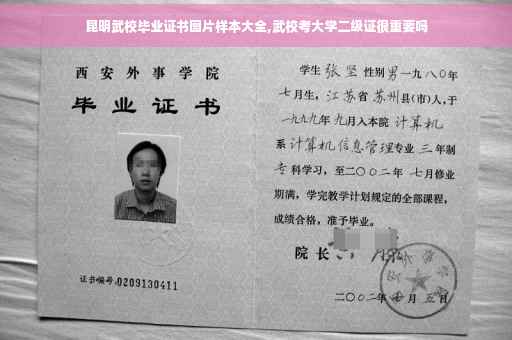 昆明武校毕业证书图片样本大全,武校考大学二级证很重要吗
西安外事学院
毕业证书
证书编号:0209130411
学生张坚性别男一九八〇年
七月生,江苏省苏州县(市)人,于
一九九九年九月入本院计算机
系计算机信息管理专业三年制
专科学习,至二〇〇二年七月修业
期满,学完教学计划规定的全部课程,
成绩合格,准予毕业。
院长
二〇〇二年 月五日